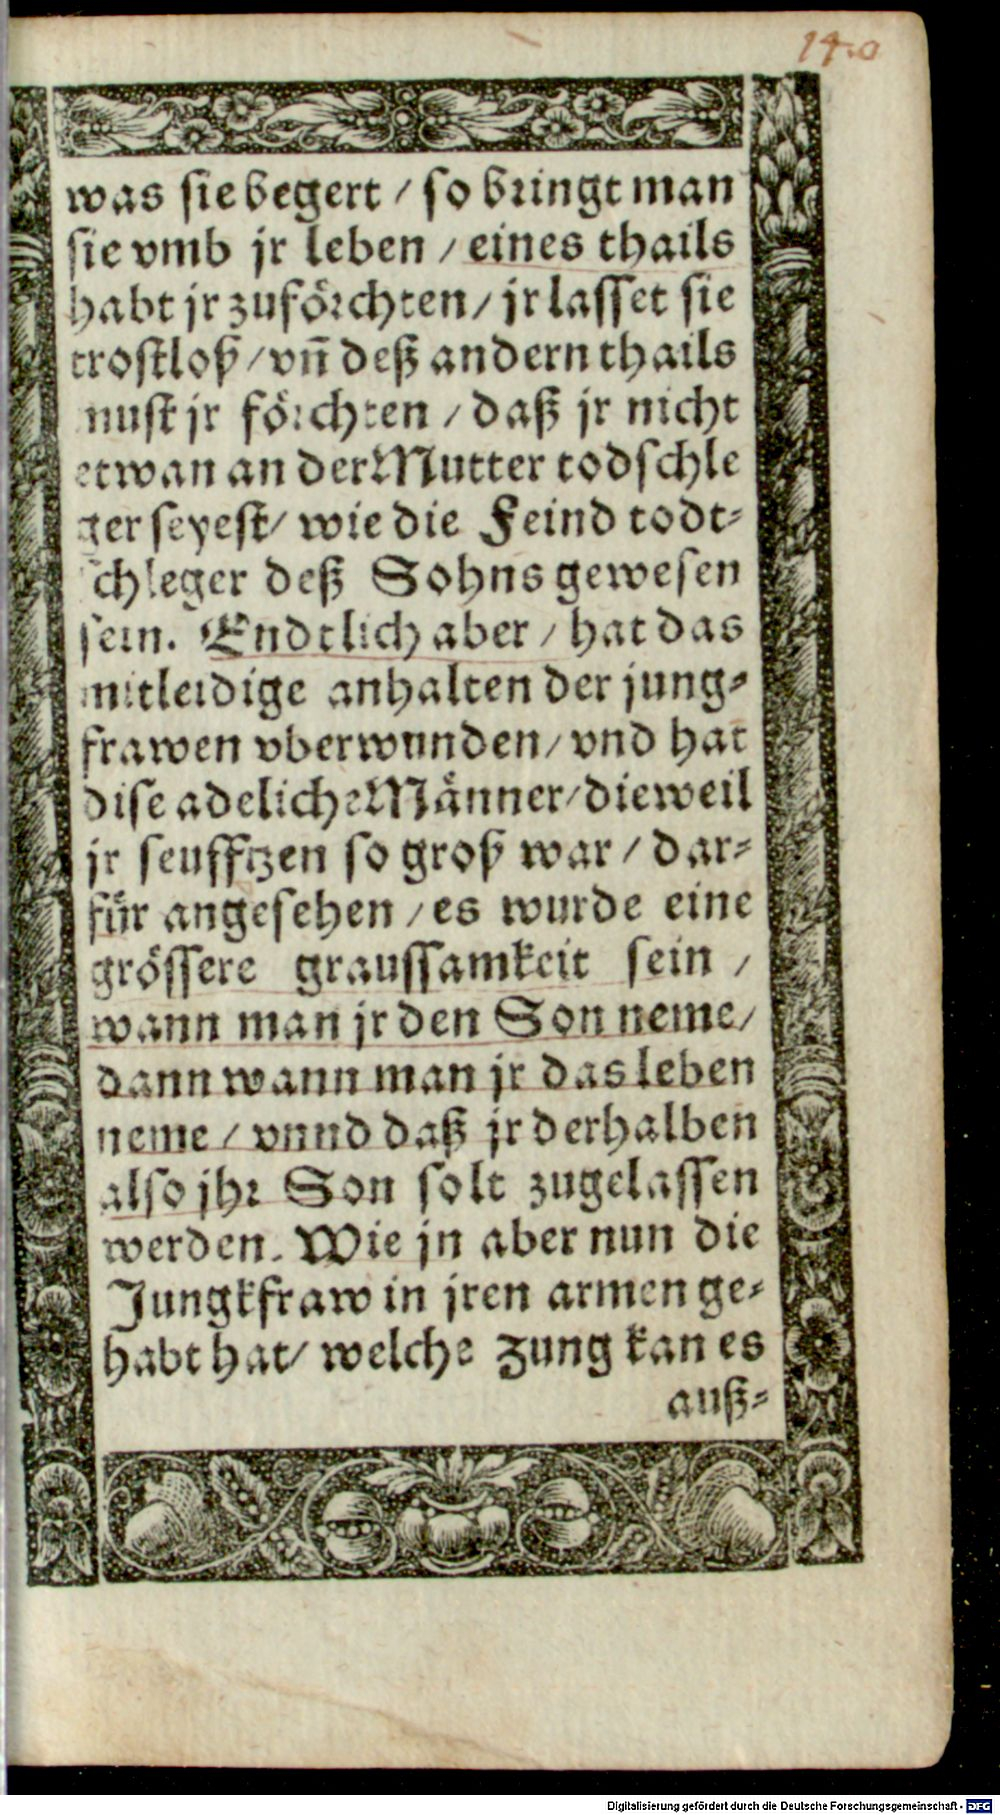 140
was sie begert / so bringt man
sie vmb jr leben / eines thails
habt jr zuförchten / jr lasset sie
trostloß / vn̄ deß andern thails
must jr förchten / daß jr nicht
etwan an der Mutter todschle
ger seyest / wie die Feind todt⸗
schleger deß Sohns gewesen
sein. Endtlich aber / hat das
mitleidige anhalten der jung⸗
frawen vberwunden / vnd hat
dise adeliche Männer / dieweil
jr seufftzen so groß war / dar⸗
für angesehen / es wurde eine
grössere graussamkeit sein /
wann man jr den Son neme /
dann wann man jr das leben
neme / vnnd daß jr derhalben
also jhr Son solt zugelassen
werden. Wie jn aber nun die
Jungkfraw in jren armen ge⸗
habt hat / welche zung kan es
auß⸗
Digitalisierung gefördert durch die Deutsche Forschungsgemeinschaft - DFG